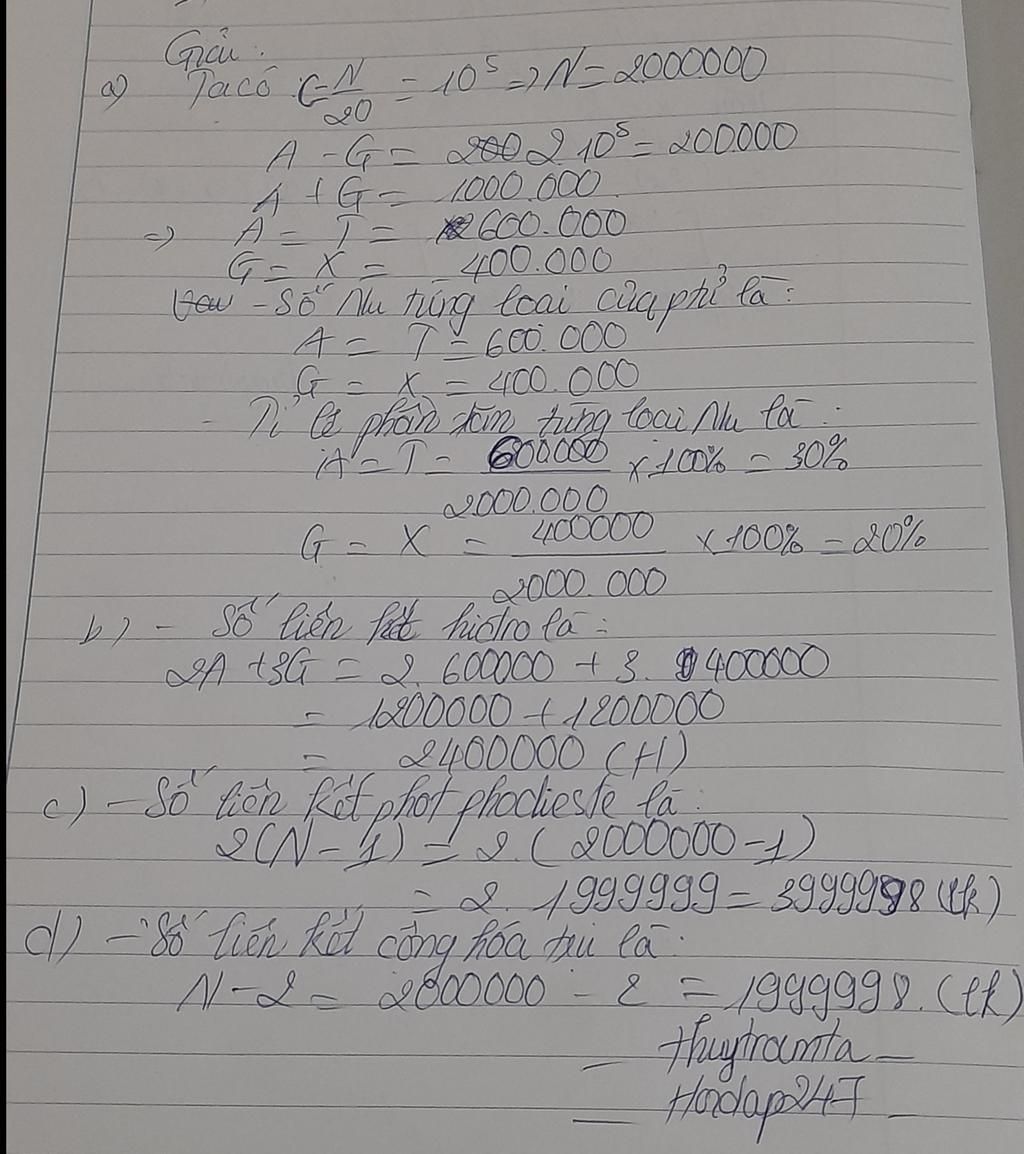 Giải:
a) Ta có C=N/20 = 10⁵ => N = 2000000
A - G = 2.10⁵ = 200.000
A + G = 1000.000
=> A = T = 600.000
G = X = 400.000
- Số Nu từng loại của phtử là:
A = T = 600.000
G = X = 400.000
- Tỉ lệ phần trăm từng loại Nu là:
A = T = 600000/2000.000 x 100% = 30%
G = X = 400000/2000.000 x 100% = 20%
b) - Số liên kết hidro là:
2A + 3G = 2. 600000 + 3. 400000
= 1200000 + 1200000
= 2400000 (H)
c) - Số liên kết photphodieste là:
2(N - 1) = 2. (2000000 - 1)
= 2. 1999999 = 3999998 (lk)
d) - Số liên kết cộng hóa trị là:
N - 2 = 2000000 - 2 = 1999998. (lk)
- thuytramta -
- Hoidap247 -